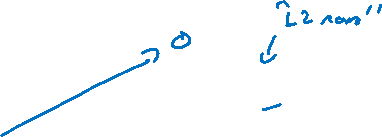 "L2 norm"
0